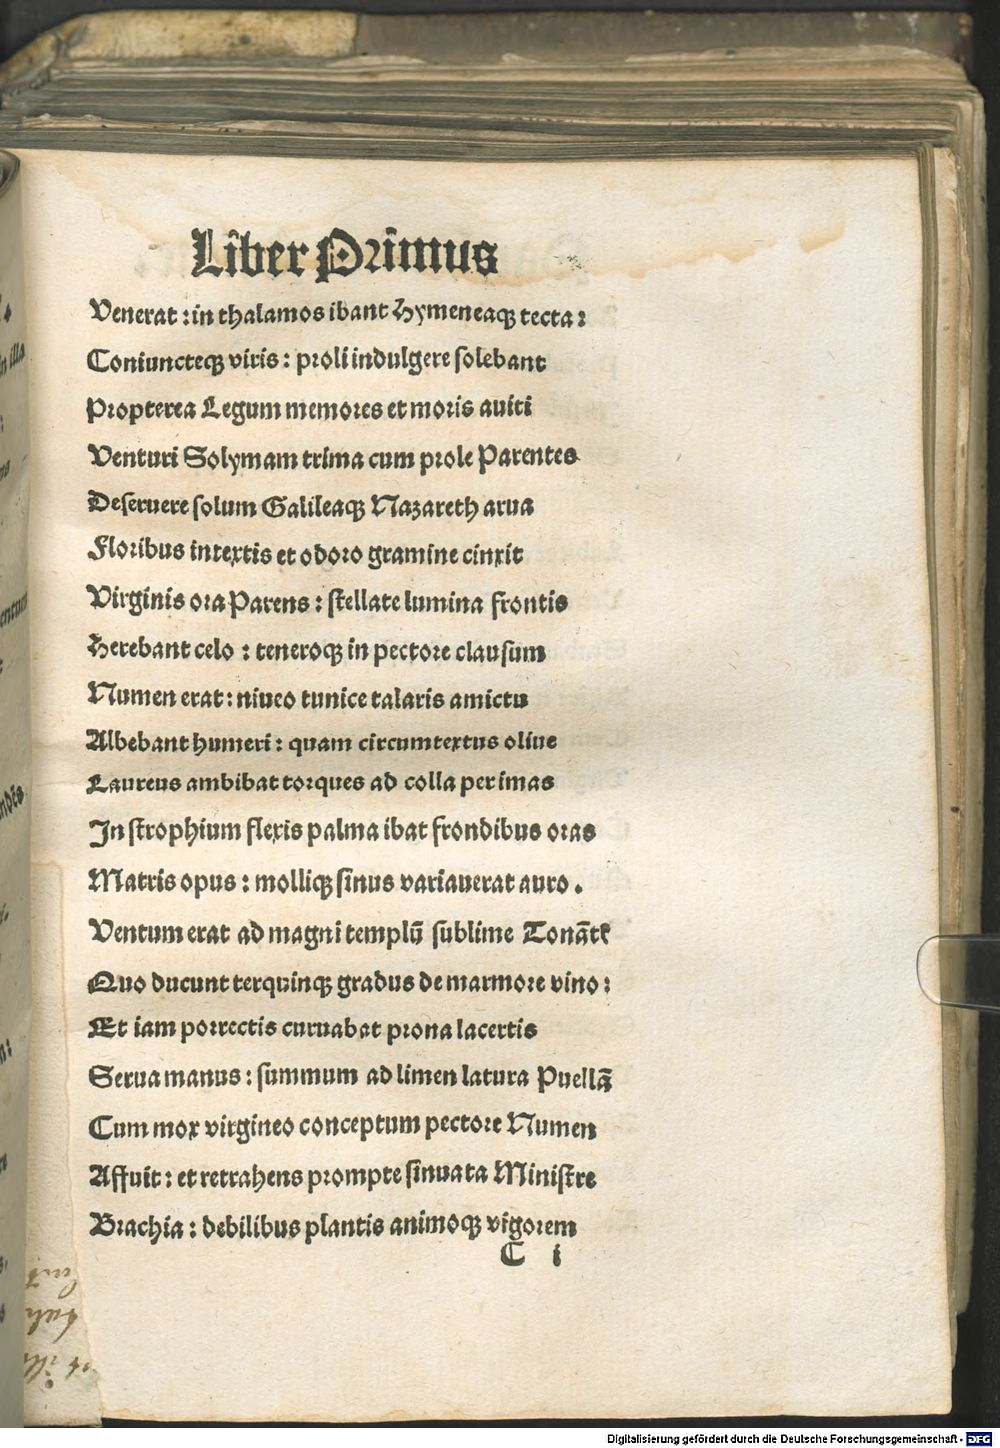 Liber Primus
Venerat : in thalamos ibant Hymeneaqꝫ tecta :
Coniuncteqꝫ viris : proli indulgere solebant
Propterea Legum memores et moris auiti
Venturi Solymam trima cum prole Parentes
Deseruere solum Galileaqꝫ Nazareth arua
Floribus intextis et odoro gramine cinxit
Virginis ora Parens : stellate lumina frontis
Herebant celo : teneroqꝫ in pectore clausum
Numen erat : niueo tunice talaris amictu
Albebant humeri : quam circumtextus oliue
Laureus ambibat torques ad colla per imas
In strophium flexis palma ibat frondibus oras
Matris opus : molliqꝫ sinus variauerat auro .
Ventum erat ad magni templū sublime Tonātꝭ
Quo ducunt terquinqꝫ gradus de marmore viuo :
Et iam porrectis curuabat prona lacertis
Serua manus : summum ad limen latura Puellā
Cum mox virgineo conceptum pectore Numen
Affuit : et retrahens prompte sinuata Ministre
Brachia : debilibus plantis animoqꝫ vigorem
C i
Digitalisierung gefördert durch die Deutsche Forschungsgemeinschaft - DFG